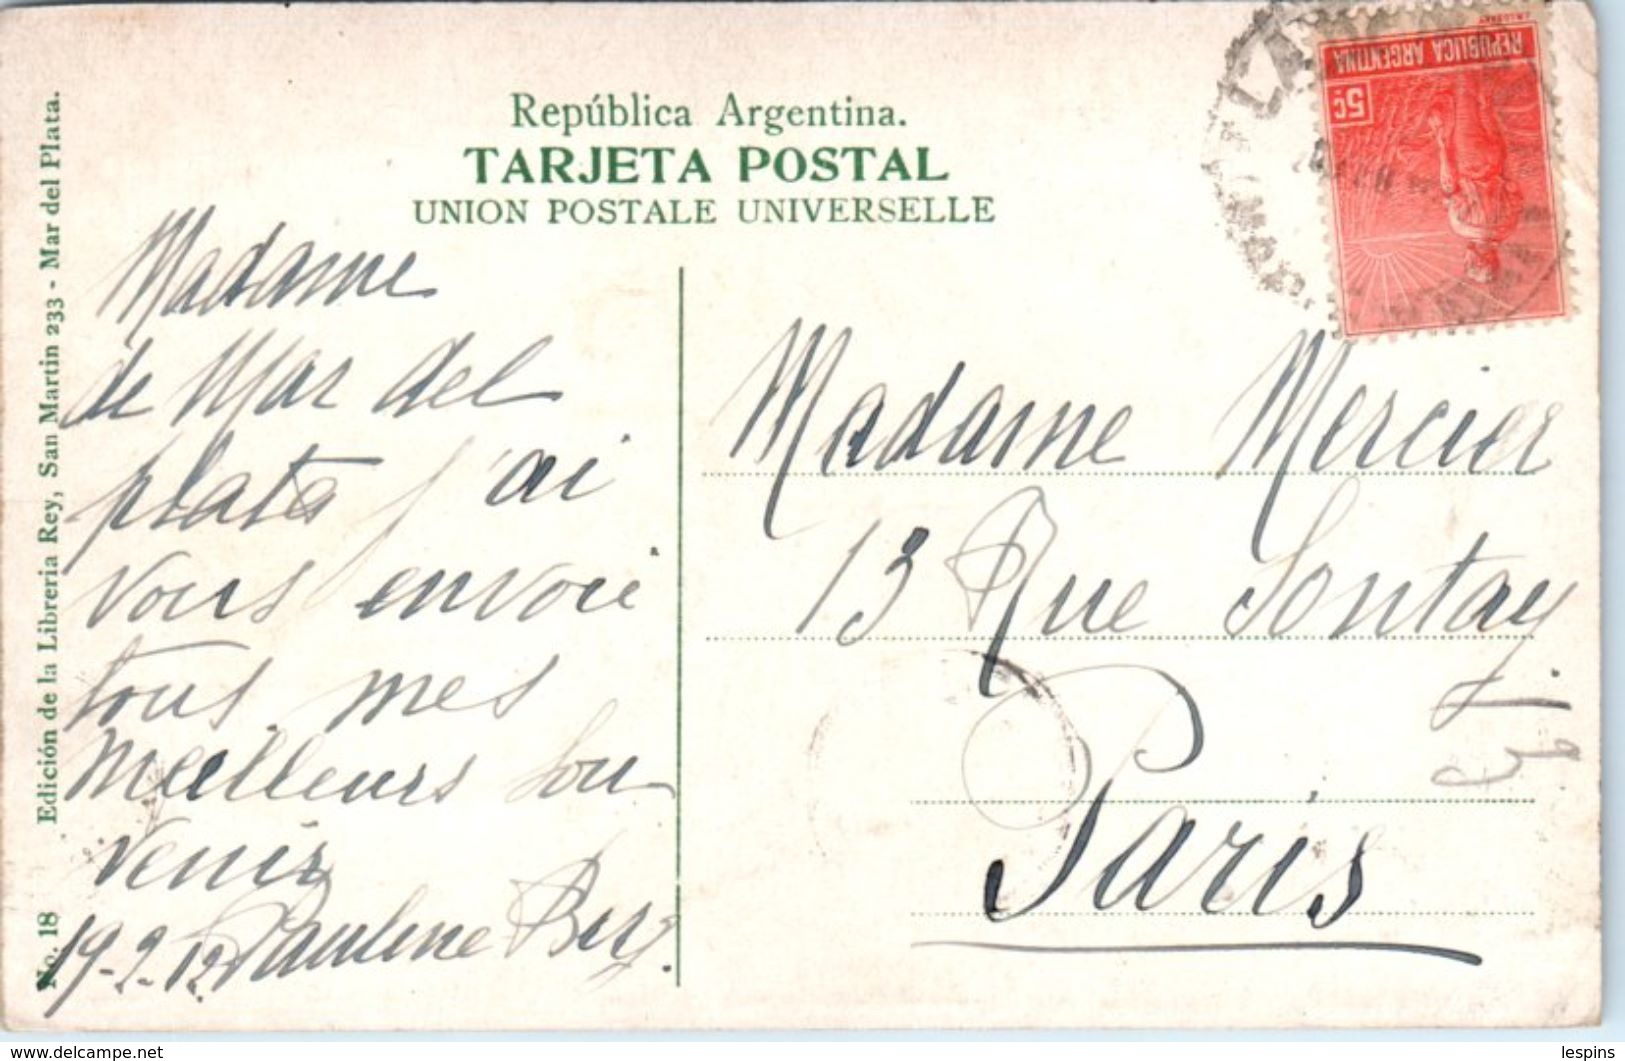 República Argentina.
TARJETA POSTAL
UNION POSTALE UNIVERSELLE
REPUBLICA ARGENTINA
5c
No. 18 Edición de la Libreria Rey, San Martin 233 - Mar del Plata.
Madame
de Mar del
plata j'ai
vous envoie
tous mes
meilleurs sou
venir
19-2-12 Pauline
Madame Mercier
13 Rue Sontay
Paris
www.delcampe.net
lespins